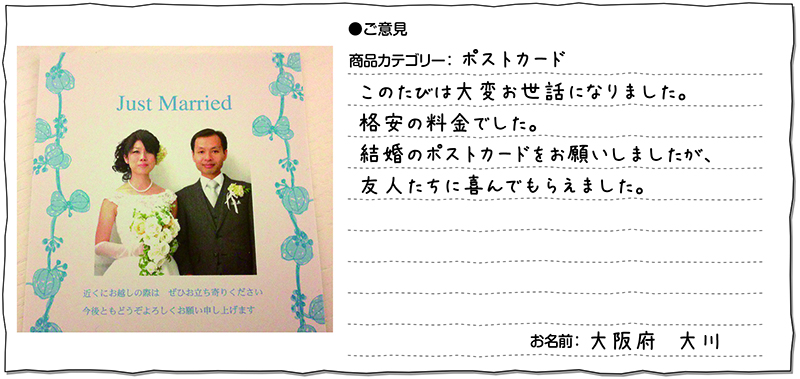 Just Married
近くにお越しの際は　ぜひお立ち寄りください
今後ともどうぞよろしくお願い申し上げます
●ご意見
商品カテゴリー：ポストカード
このたびは大変お世話になりました。
格安の料金でした。
結婚のポストカードをお願いしましたが、
友人たちに喜んでもらえました。
お名前：大阪府　大川